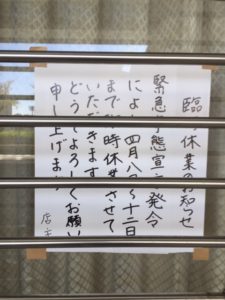 臨時休業のお知らせ
緊急事態宣言発令
により四月八日〜十二日
まで臨時休業させて
いただきます。
どうぞよろしくお願い
申し上げます
店主